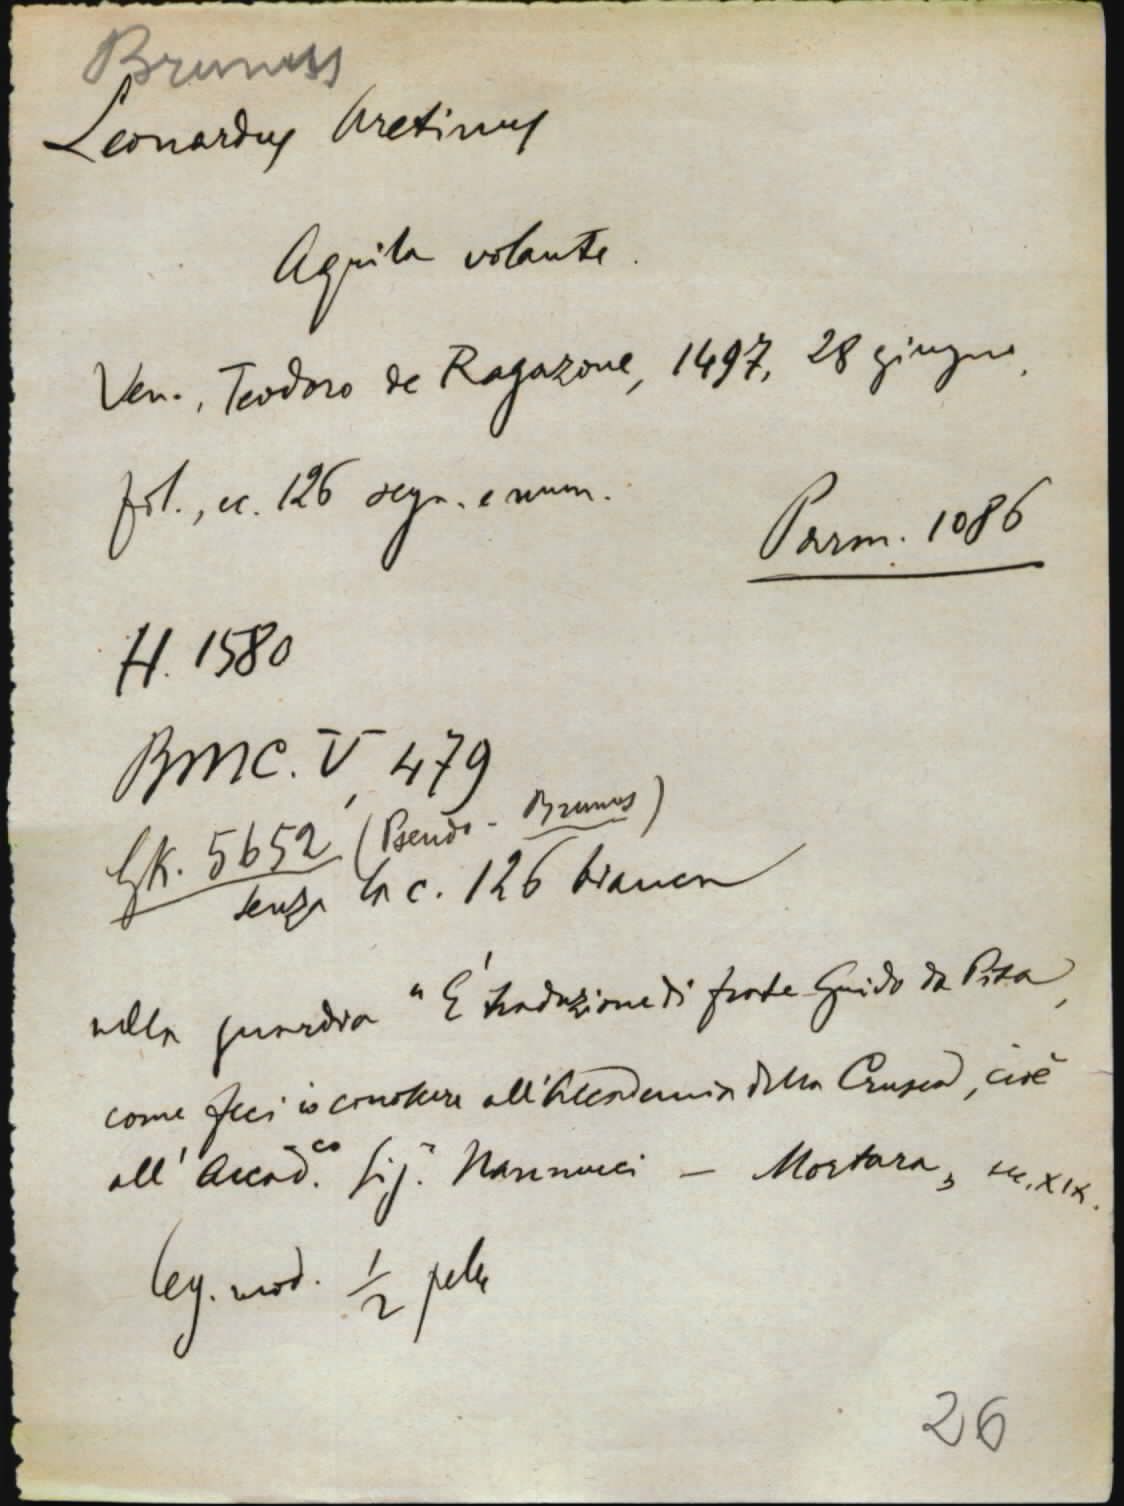 Brunus
Leonardus Aretinus
Aquila volante.
Ven., Teodoro de Ragazone, 1497, 28 giugno,
fol., cc. 126 segn. e num.
Parm. 1086
H. 1580
BMC. V, 479
GK. 5652 (Pseudo-Brunus)
senza la c. 126 bianca
nella guardia "È traduzione di frate Guido da Pisa,
come feci io conoscere all'Accademia della Crusca, cioè
all'Accad.co Sig.r Nannucci – Mortara, sec. XIX.
leg. mod. 1/2 pelle
26